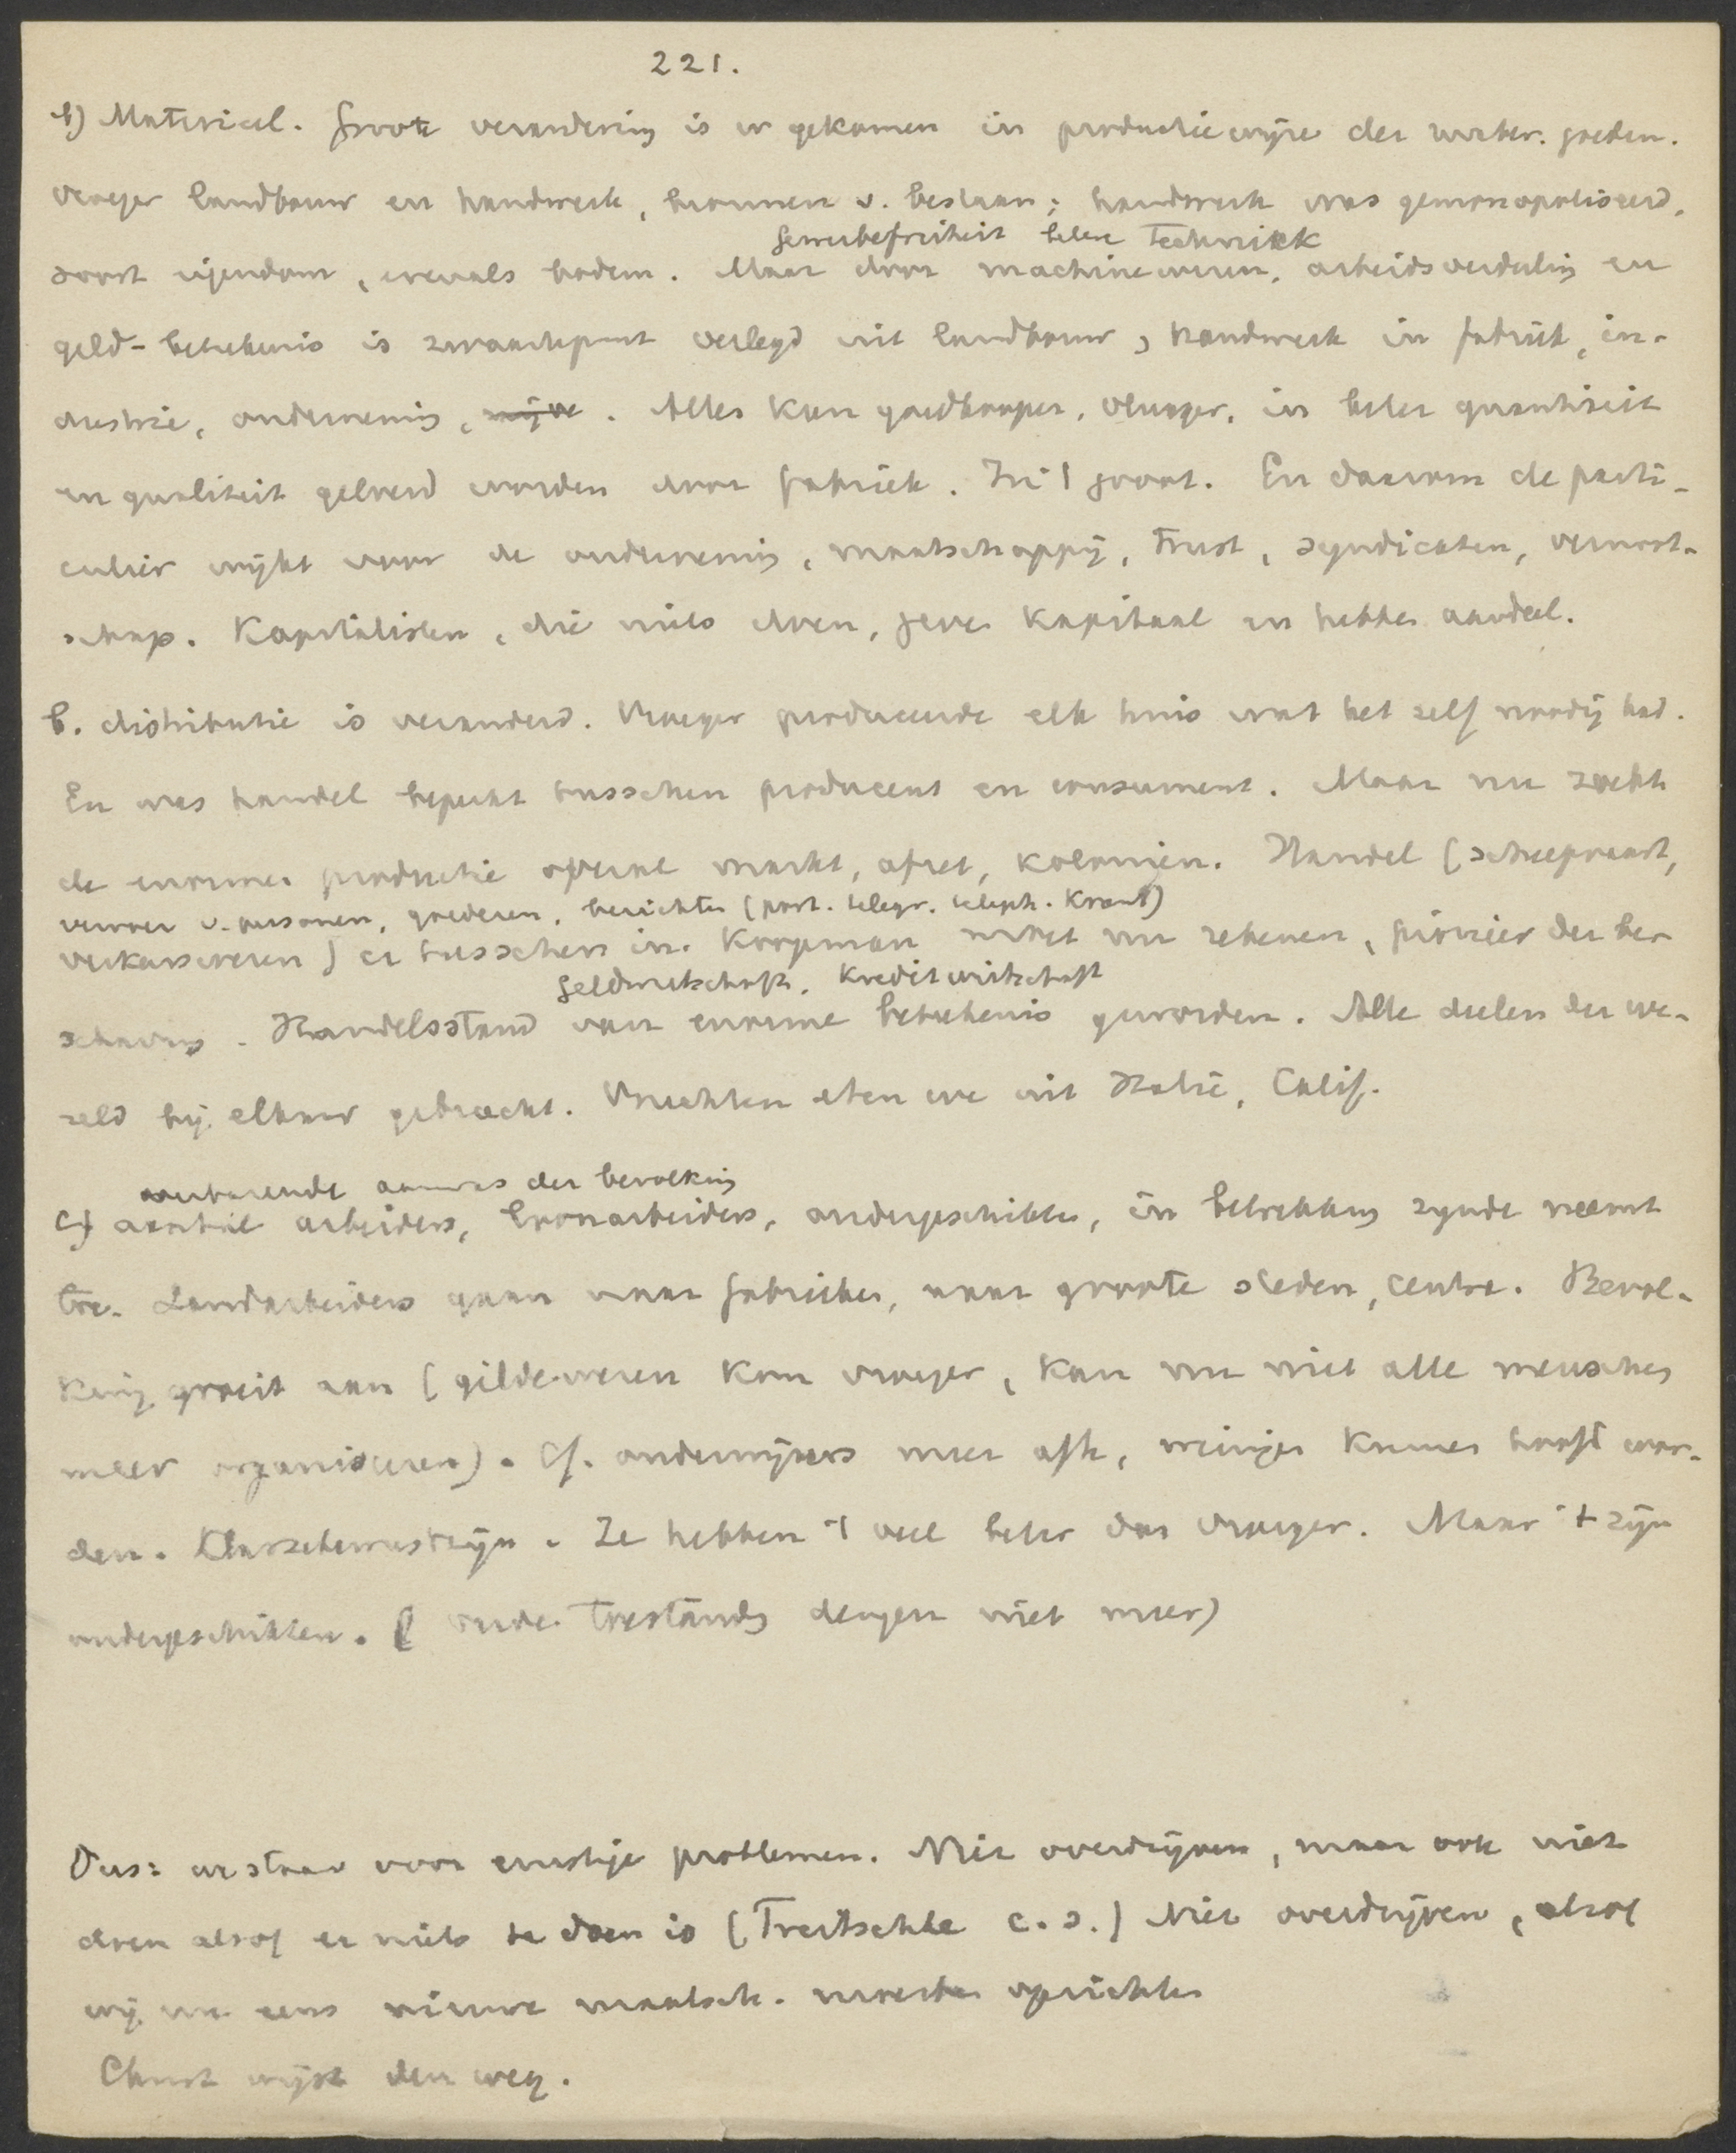 221.
b) Materieel. Groote verandering is er gekomen in productiewijze der mater. goeden.
Vroeger landbouw en handwerk, bronnen v. bestaan; handwerk was gemonopoliseerd,
Gewerbefreiheit betere Techniek
soort eigendom, evenals bodem. Maar door machinewezen, arbeidsverdeling en
geld-beteekenis is zwaartepunt verlegd uit landbouw, handwerk in fabriek, in-
dustrie, onderneming. Alles kan goedkooper, vlugger, in beter quantiteit
en qualiteit geleverd worden door fabriek. In 't groot. En daarom de parti-
culier wijkt voor de onderneming, maatschappij, Trust, syndicaten, vennoot-
schap. Kapitalisten, die niets doen, geven Kapitaal en hebben aandeel.
b. distributie is veranderd. Vroeger produceerde elk huis wat het zelf noodig had.
En was handel beperkt tusschen producent en consument. Maar nu zoekt
de enorme productie overal markt, afzet, koloniën. Handel (scheepvaart,
vervoer v. personen, goederen, berichten (post. telegr. teleph. Krant)
verkeerswezen) er tusschen in. Koopman moet nu rekenen, pionier der be-
Geldwirtschaft. Kreditwirtschaft
schaving. Handelsstand van enorme beteekenis geworden. Alle deelen der we-
reld bij elkaar gebracht. Vruchten eten we uit Italië, Calif.
aanwas der bevolking
c) aantal arbeiders, loonarbeiders, ondergeschikten, in betrekking zynde neemt
toe. Landarbeiders gaan naar fabrieken, naar groote steden, centra. Bevol-
king groeit aan (gildewezen kon vroeger, kan nu niet alle menschen
meer organiseeren). Cf. onderwijzers enz, weinigen kunnen hoofd wor-
den. Klassebewustzijn. Ze hebben 't veel beter dan vroeger. Maar 't zijn
ondergeschikten. (oude toestanden deugen niet meer)
Dus: we staan voor ernstige problemen. Niet overdrijven, maar ook niet
doen alsof er niets te doen is (Treitschke c.s.) Niet overdrijven, alsof
wij nu eens nieuwe maatsch. moesten oprichten
Christ wijst den weg.